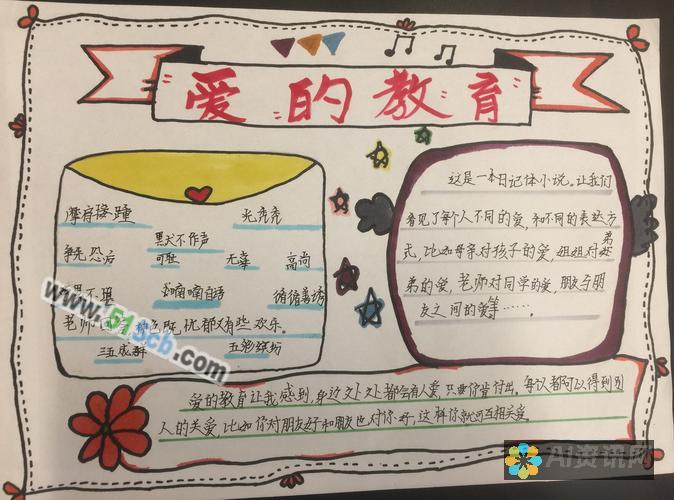 爱的教育
摩肩接踵 光秃秃
默不作声
争先恐后 可耻 无辜 高尚
喃喃自语 循循善诱
老师 既忧郁又有些欢乐。
三五成群 五彩缤纷
这是一本日记体小说。让我们
看见了每个人不同的爱,和不同的表达方
式,比如母亲对孩子的爱,姐姐对弟
弟的爱,老师对同学的爱,朋友与朋
友之间的爱等……。
爱的教育让我感到,身边处处都会有人爱,只要你肯付出。每次都可以得到别
人的关爱,比如你对朋友好和朋友也对你好,这样你就可互相关爱。
www.51scb.com
AI资讯网